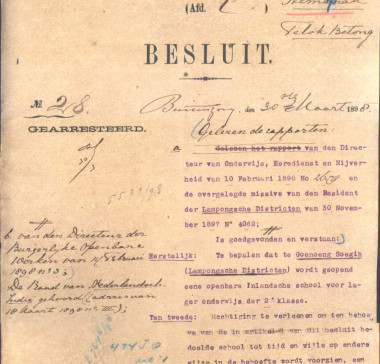 (Afd.
Telok Betong
BESLUIT.
№ 28
Buitenzorg, den 30 Maart 1898.
GEARRESTEERD.
Gelezen de rapporten:
a Gelezen het rapport van den Direc-
teur van Onderwijs, Eeredienst en Nijver-
heid van 10 Februari 1898 No
en de overgelegde missive van den Resident
der Lampongsche Districten van 30 November
1897 Nº 4062;
Is goedgevonden en verstaan:
Eerstelijk: Te bepalen dat te Goenoeng Soegih
(Lampongsche Districten) wordt geopend
eene openbare Inlandsche school voor la-
ger onderwijs der 2e klasse.
Ten tweede: Machtiging te verleenen om ten behoe-
ve van de in artikel van dit besluit be-
doelde school tot tijd en wijle op andere
wijze in de behoefte wordt voorzien, een
b. van den Directeur der
Burgerlijke Openbare
Werken van Februari
1898 nº 3;
De Raad van Nederlandsch-
Indië gehoord (advies van
18 Maart 1898 nº